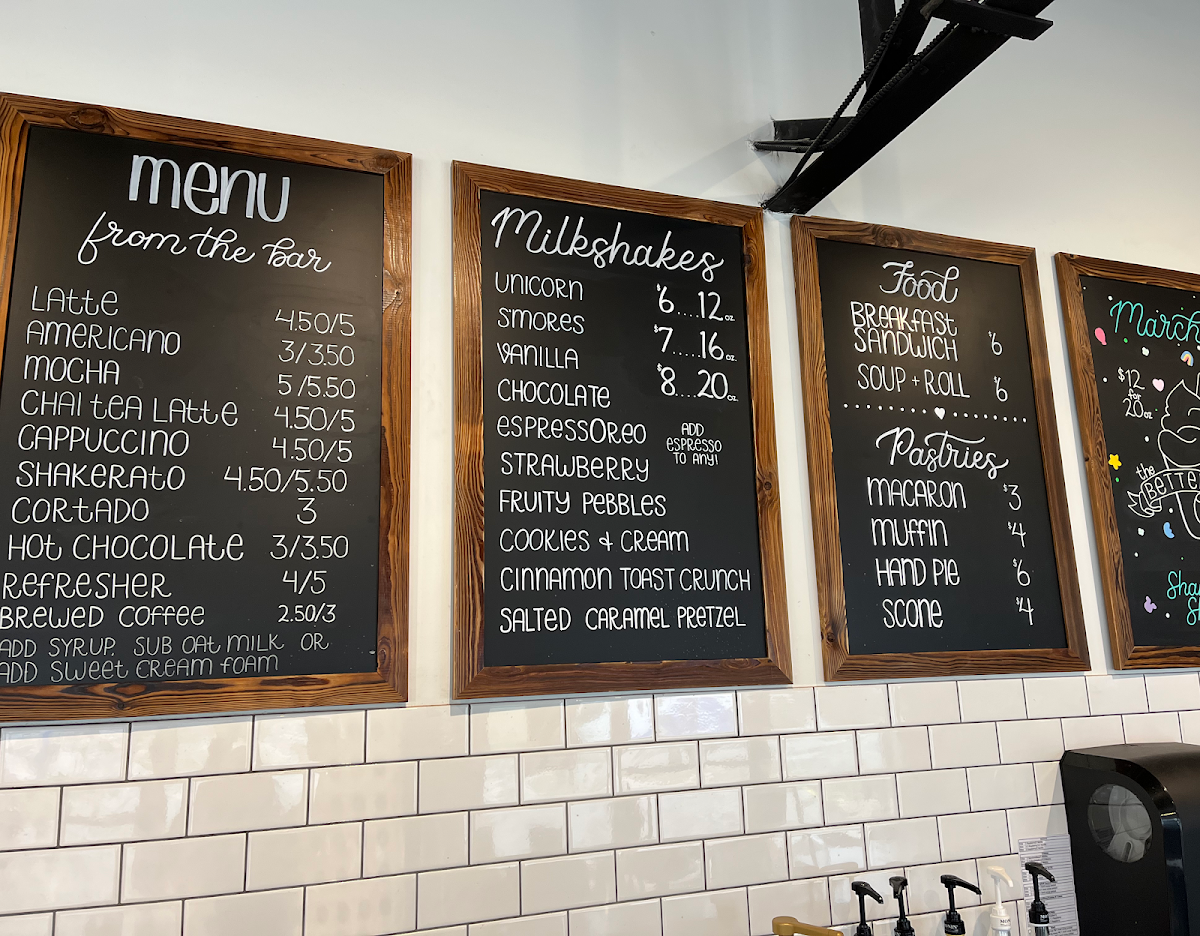 menu
from the bar
LATTE 4.50/5
AMERICANO 3/3.50
MOCHA 5/5.50
CHAI TEA LATTE 4.50/5
CAPPUCCINO 4.50/5
SHAKERATO 4.50/5.50
CORTADO 3
HOT CHOCOLATE 3/3.50
REFRESHER 4/5
BREWED COFFEE 2.50/3
ADD SYRUP, SUB OAT MILK OR
ADD SWEET CREAM FOAM
Milkshakes
UNICORN
S'MORES
VANILLA
CHOCOLATE
ESPRESSOREO
STRAWBERRY
FRUITY PEBBLES
COOKIES + CREAM
CINNAMON TOAST CRUNCH
SALTED CARAMEL PRETZEL
$6....12 oz.
$7.....16 oz.
$8....20 oz.
ADD
ESPRESSO
TO ANY!
Food
BREAKFAST
SANDWICH $6
SOUP + ROLL $6
Pastries
MACARON $3
MUFFIN $4
HAND PIE $6
SCONE $4
March
$12
for
20oz
the